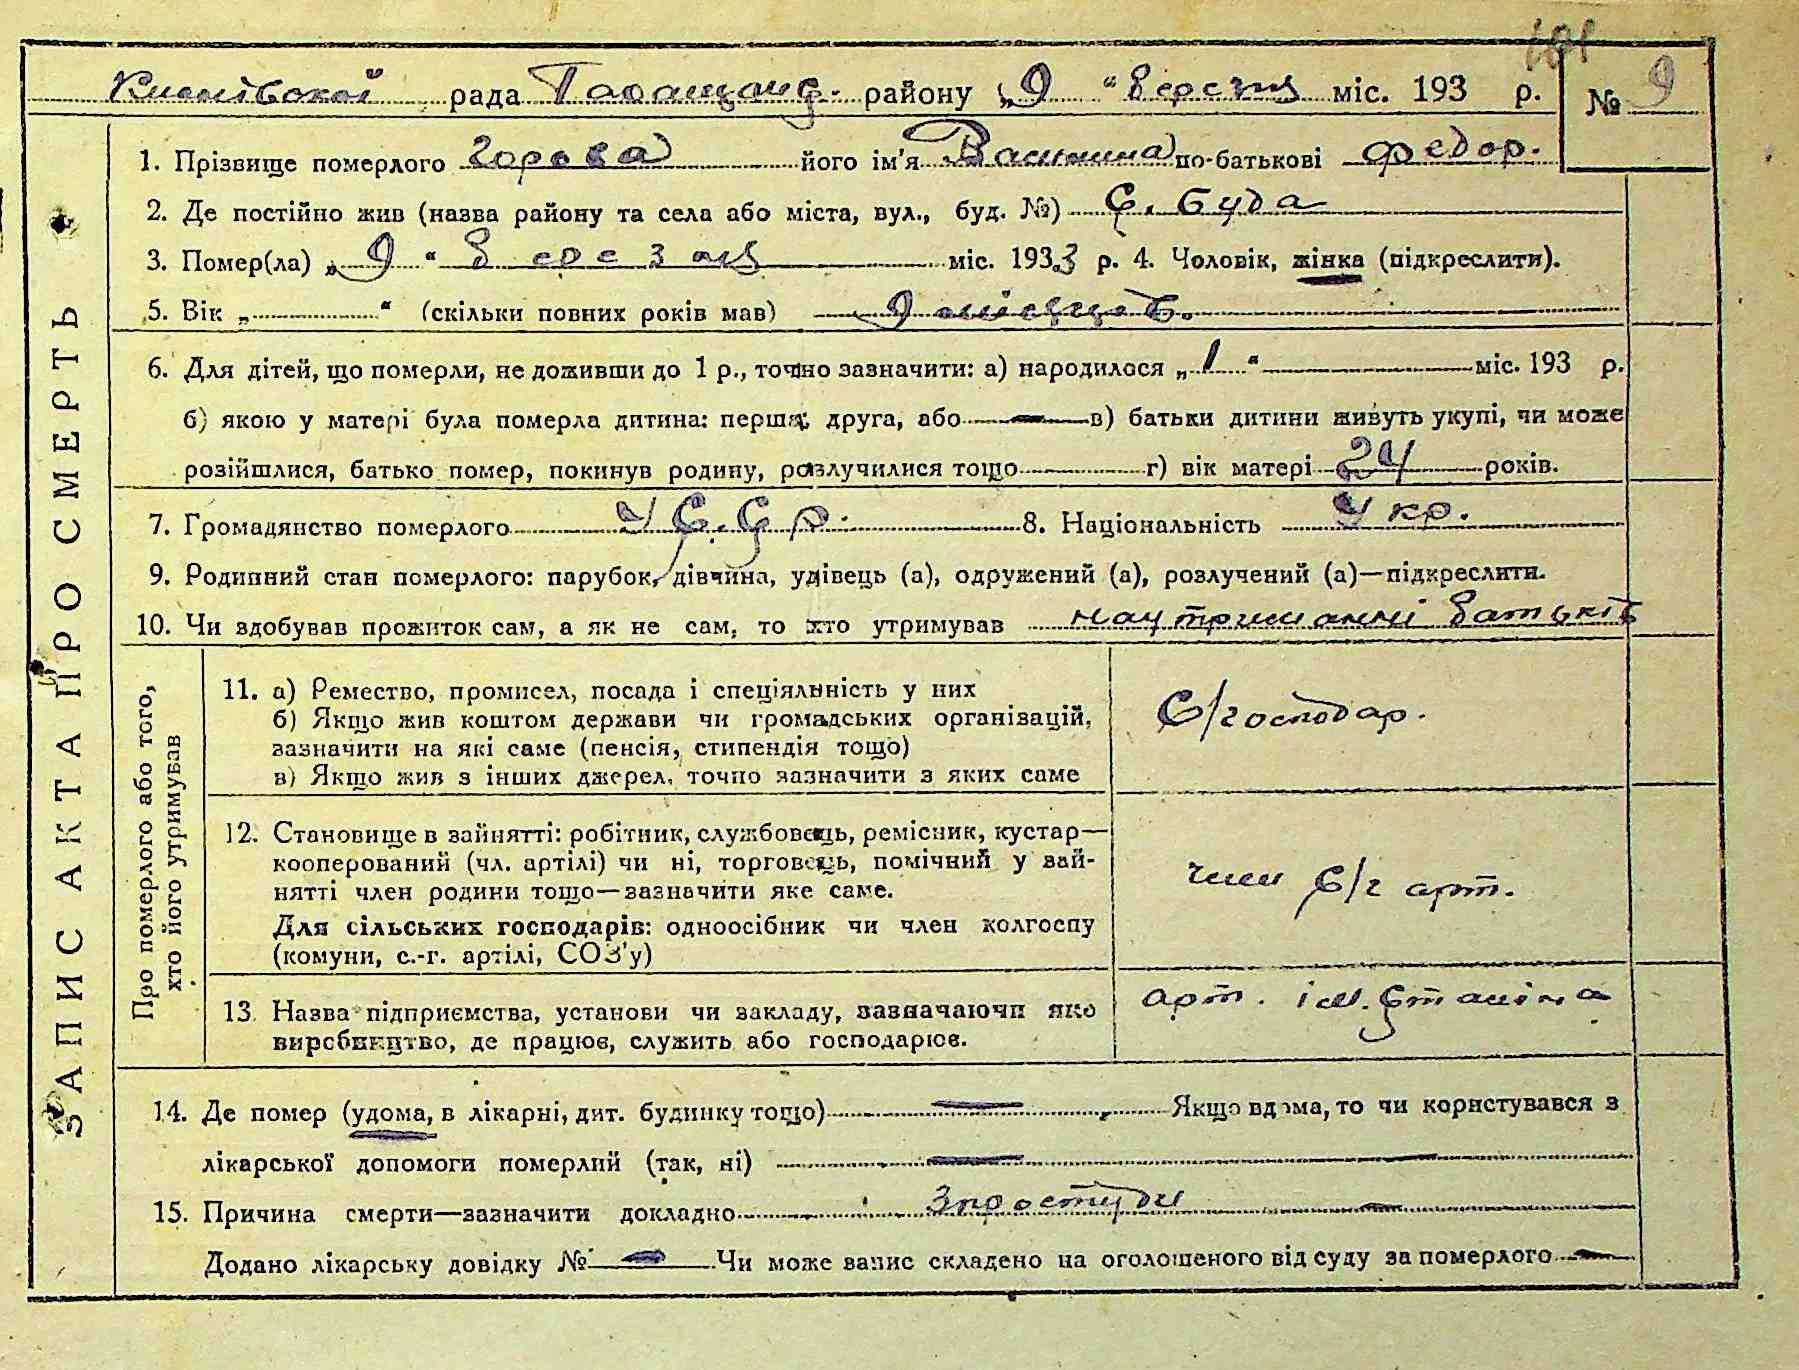 101
рада Таращанд. району „ 9 “ Березня міс. 193 р. № 9
ЗАПИС АКТА ПРО СМЕРТЬ
1. Прізвище померлого Горова його ім'я Василина по-батькові Федор.
2. Де постійно жив (назва району та села або міста, вул., буд. №) С. Буда
3. Помер(ла) „ 9 “ Березня міс. 1933 р. 4. Чоловік, жінка (підкреслити).
5. Вік „ “ (скільки повних років мав) 9 місяців.
6. Для дітей, що померли, не доживши до 1 р., точно зазначити: а) народилося „ 1 “ міс. 193 р.
б) якою у матері була померла дитина: перша; друга, або — в) батьки дитини живуть укупі, чи може
розійшлися, батько помер, покинув родину, розлучилися тощо г) вік матері 24 років.
7. Громадянство померлого УССР. 8. Національність Укр.
9. Родинний стан померлого: парубок, дівчина, удівець (а), одружений (а), розлучений (а)—підкреслити.
10. Чи здобував прожиток сам, а як не сам, то хто утримував на утриманні батьків
Про померлого або того,
хто його утримував
11. а) Ремество, промисел, посада і спеціяльність у них
б) Якщо жив коштом держави чи громадських організацій,
зазначити на які саме (пенсія, стипендія тощо)
в) Якщо жив з інших джерел, точно зазначити з яких саме
С/господар.
12. Становище в зайнятті: робітник, службовець, ремісник, кустар—
кооперований (чл. артілі) чи ні, торговець, помічний у зай-
нятті член родини тощо—зазначити яке саме.
Для сільських господарів: одноосібник чи член колгоспу
(комуни, с.-г. артілі, СОЗ'у)
член С/г арт.
13. Назва підприємства, установи чи закладу, зазначаючи яке
виробництво, де працює, служить або господарює.
арт. ім. Сталіна
14. Де помер (удома, в лікарні, дит. будинку тощо) — Якщо вдома, то чи користувався з
лікарської допомоги померлий (так, ні) —
15. Причина смерти—зазначити докладно зпростуди —
Додано лікарську довідку № — Чи може запис складено на оголошеного від суду за померлого —